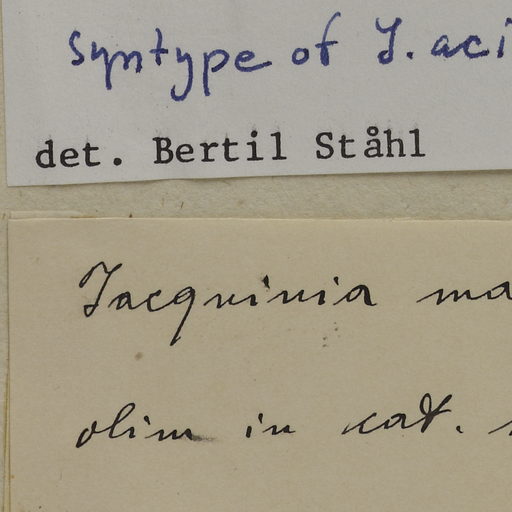 Syntype of J. aci
det. Bertil Ståhl
Jacquinia ma
olim in cat.